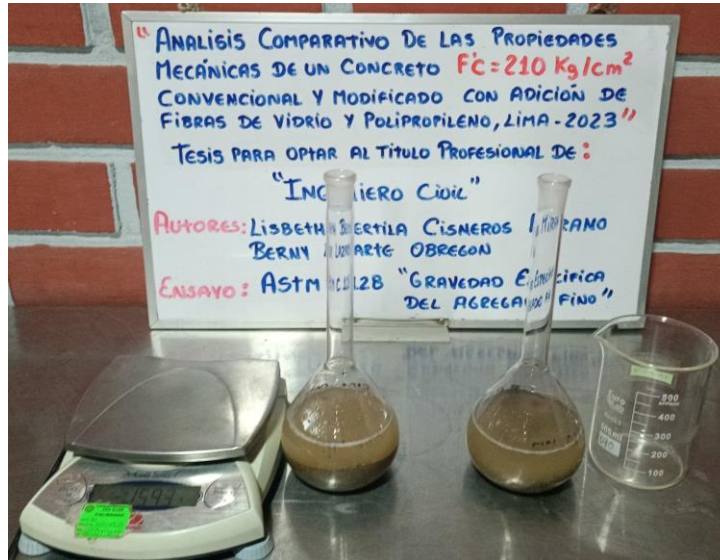 "ANALISIS COMPARATIVO DE LAS PROPIEDADES
MECÁNICAS DE UN CONCRETO F'C=210 Kg/cm²
CONVENCIONAL Y MODIFICADO CON ADICIÓN DE
FIBRAS DE VIDRIO Y POLIPROPILENO, LIMA-2023"
TESIS PARA OPTAR AL TÍTULO PROFESIONAL DE:
"INGENIERO CIVIL"
AUTORES: LISBETH BERTILA CISNEROS
BERNY OBREGON
ENSAYO: ASTM C128 "GRAVEDAD ESPECIFICA
DEL AGREGADO FINO"
500
400
300
200
100